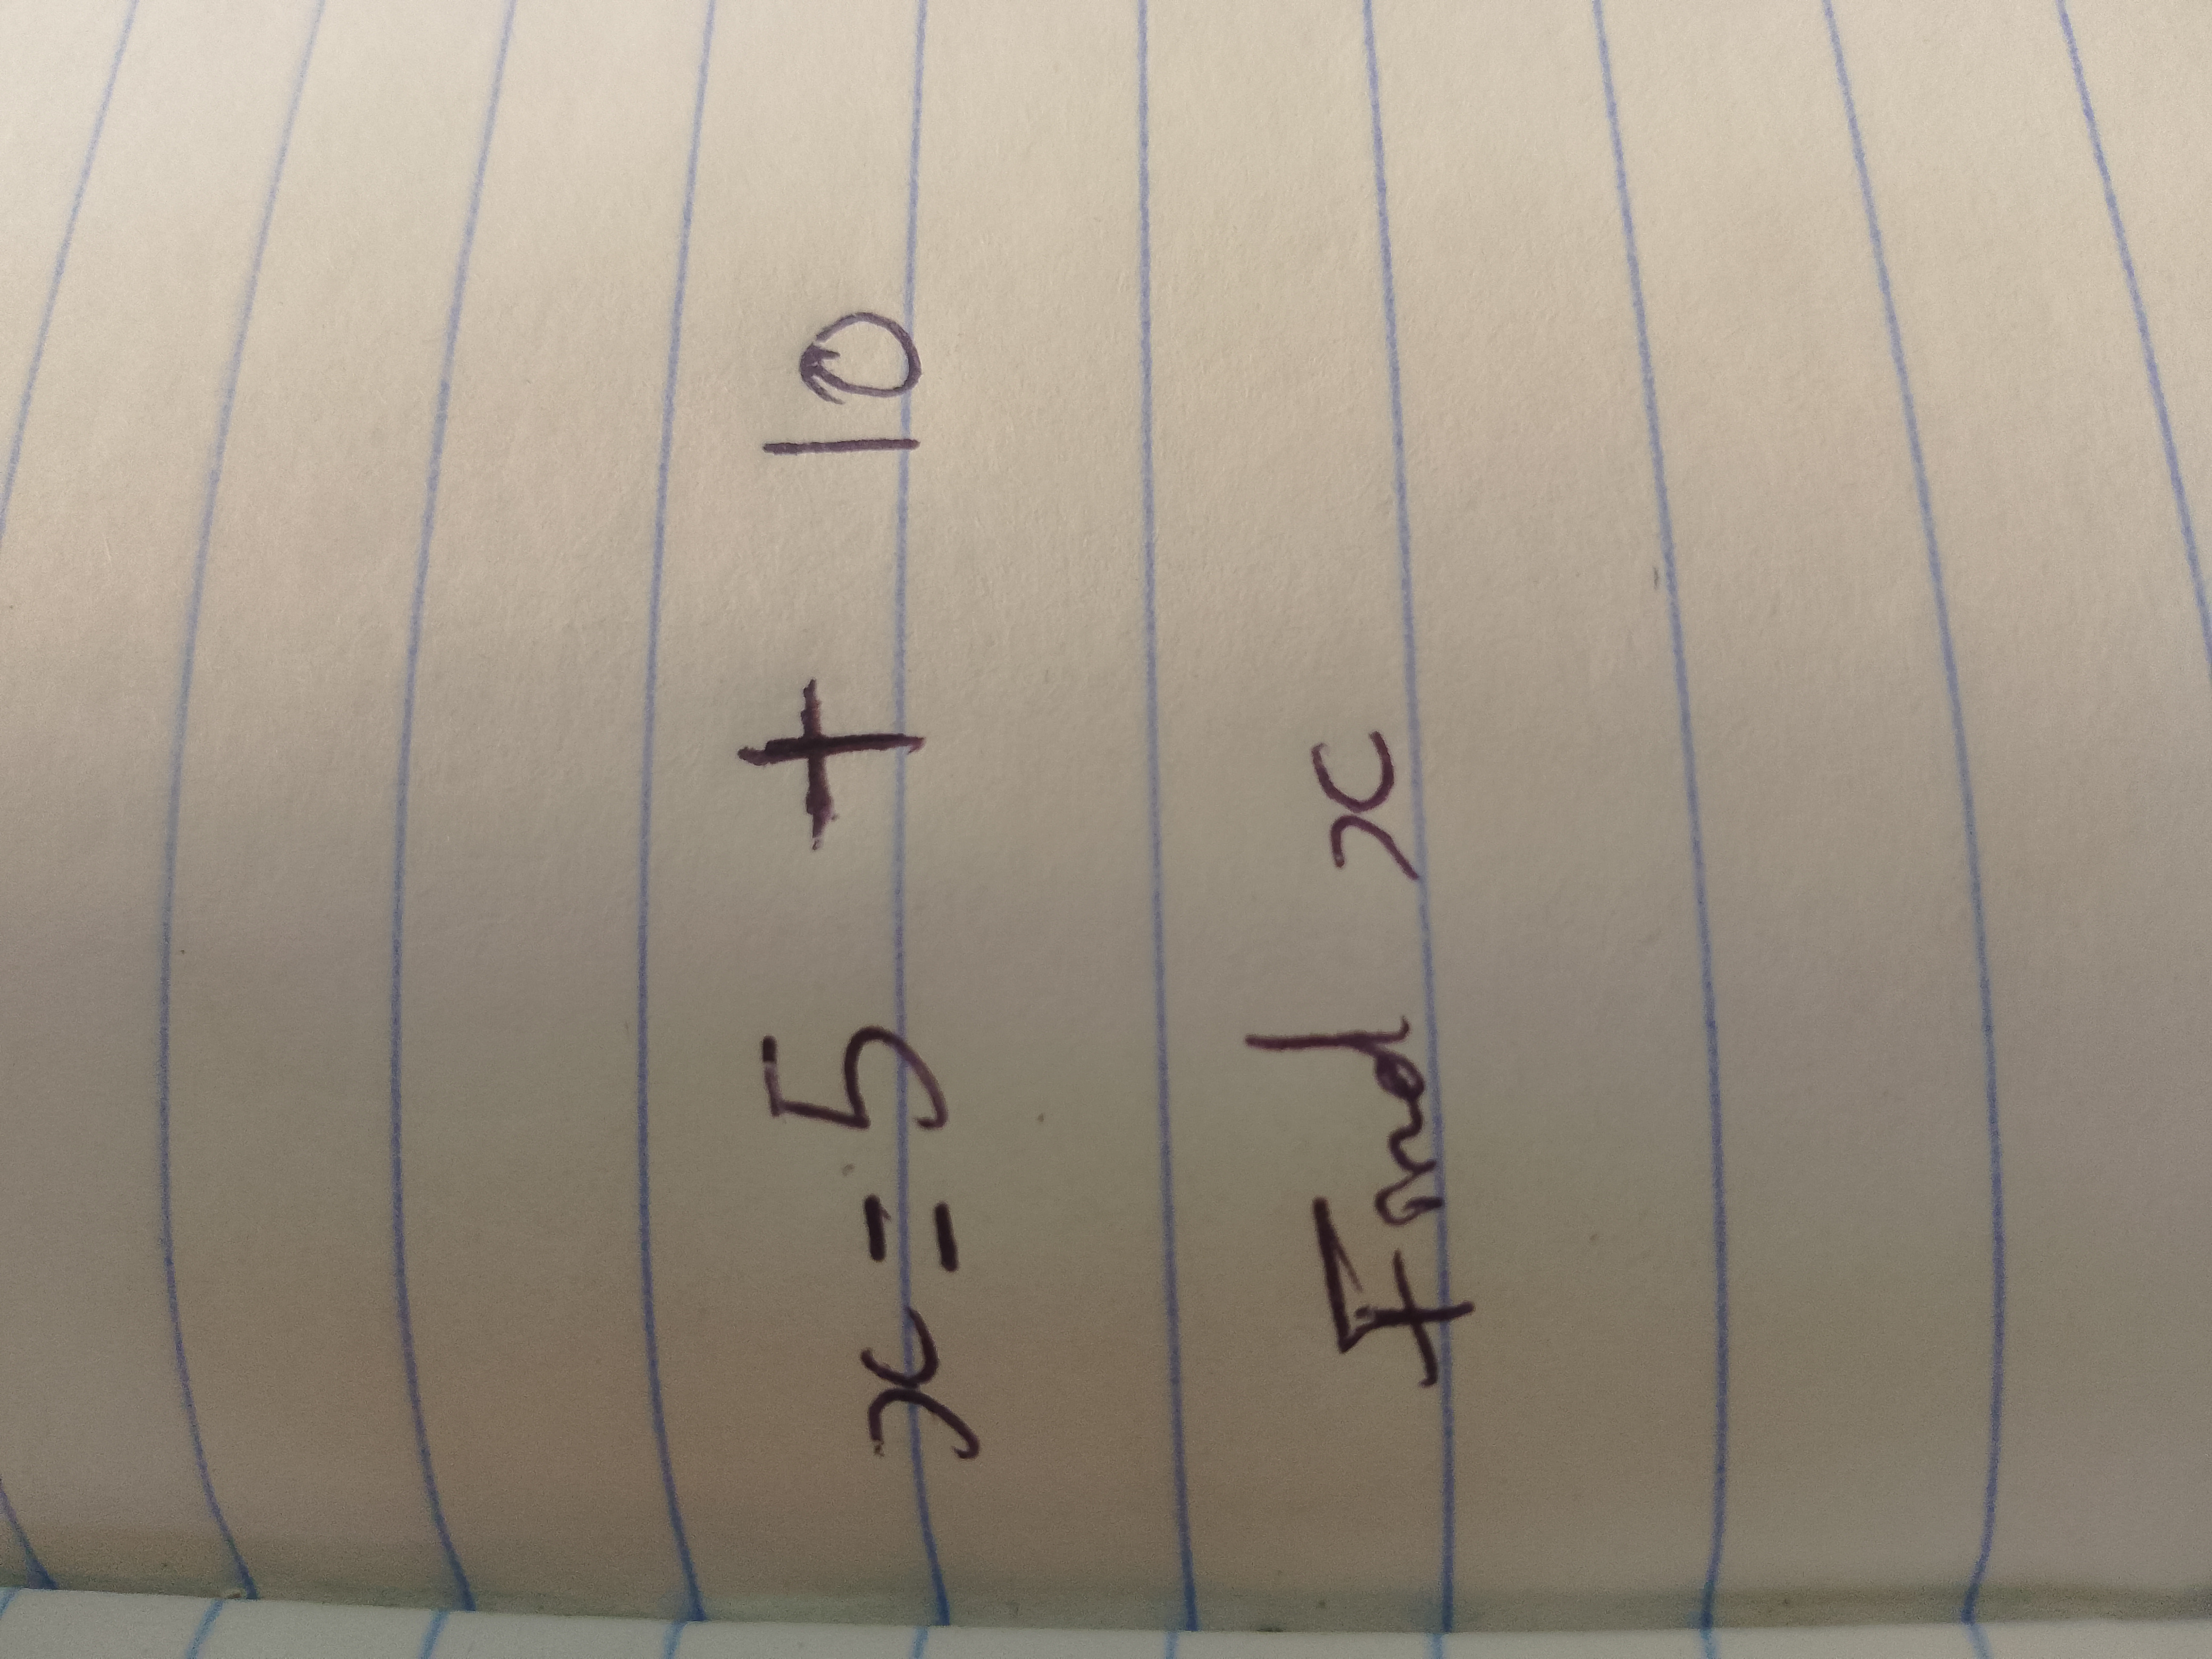 x = 5 + 10
Find x